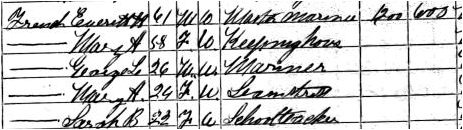 French Everett H 61 M W Master Mariner 1200 600
—— Mary A 58 F W Keeping hous
—— George L 26 M W Mariner
—— Mary A. 24 F W Seamstress
—— Sarah B 22 F W School teacher